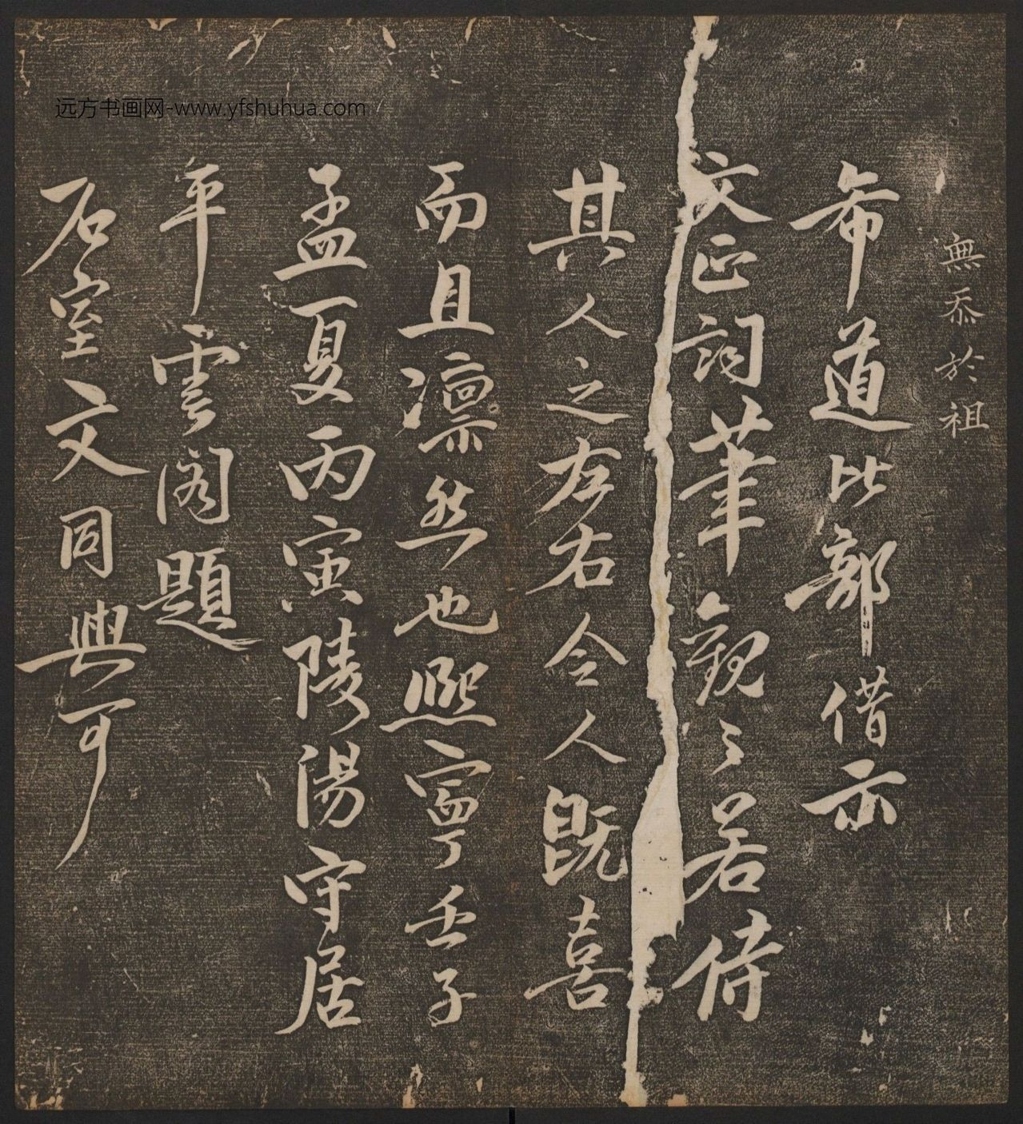 無忝於祖
希道比部借示
文正詞筆觀之若侍
其人之左右令人既喜
而且凛然也熈寧壬子
孟夏丙寅陵陽守居
平雲閣題
石室文同與可
远方书画网-www.yfshuhua.com